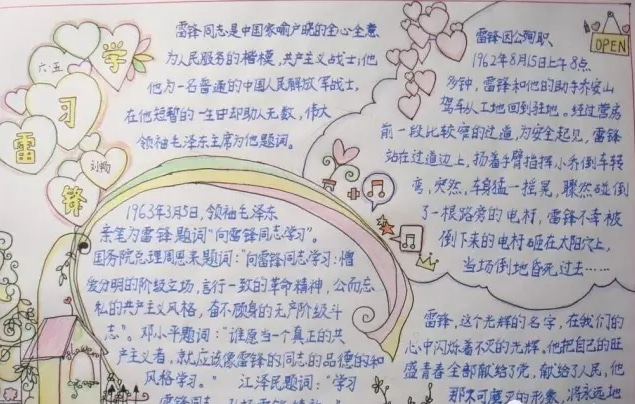 学
习
雷
锋
六·五
刘畅
雷锋同志是中国家喻户晓的全心全意
为人民服务的楷模,共产主义战士;他
他为一名普通的中国人民解放军战士,
在他短暂的一生中却助人无数,伟大
领袖毛泽东主席为他题词。
OPEN
雷锋因公殉职
1962年8月15日上午8点
多钟,雷锋和他的助手乔安山
驾车从工地回到驻地。经过营房
前一段比较窄的过道,为安全起见,雷锋
站在过道边上,扬着手臂指挥小乔倒车转
弯,突然,车身猛一摇晃,骤然碰倒
了一根路旁的电杆,雷锋不幸被
倒下来的电杆砸在太阳穴上,
当场倒地昏死过去……
1963年3月5日,领袖毛泽东
亲笔为雷锋题词“向雷锋同志学习”。
国务院总理周恩来题词:“向雷锋同志学习:憎
爱分明的阶级立场,言行一致的革命精神,公而忘
私的共产主义风格,奋不顾身的无产阶级斗
志”。邓小平题词:“谁愿当一个真正的共
产主义者,就应该像雷锋的同志的品德的和
风格学习。” 江泽民题词:“学习
雷锋,这个光辉的名字,在我们的
心中闪烁着不灭的光辉。他把自己的旺
盛青春全部献给了党,献给了人民,他
那不可磨灭的形象,将永远地